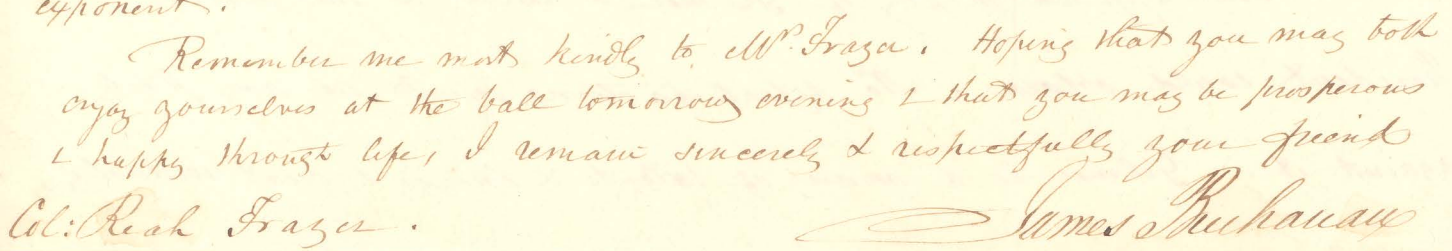 exponent.
Remember me most kindly to Mrs. Frazer. Hoping that you may both
enjoy yourselves at the ball tomorrow evening & that you may be prosperous
& happy through life, I remain sincerely & respectfully your friend
James Buchanan
Col: Reah Frazer.